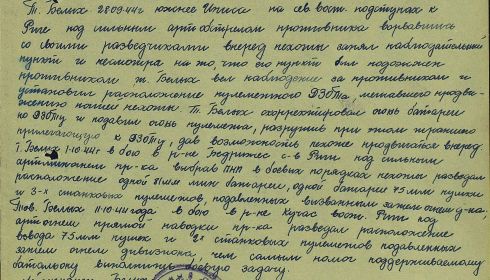 Т. Белых 28.09.44г южнее на сев. вост. подступах к
Риге под сильным артобстрелом противника ворвавшись
со своими разведчиками вперед пехоты занял наблюдательный
пункт и несмотря на то, что его пункт был подожжен
противником т. Белых вел наблюдение за противником и
установил расположение пулеметного ДЗОТа, мешавшего продви-
жению нашей пехоты. Т. Белых скорректировал огонь батареи
по ДЗОТу и подавил огонь пулемета, разрушив при этом траншею
прилегающую к ДЗОТу, дав возможность пехоте продвигаться вперед.
Т. Белых 1-10-44г в бою в р-не с-в Риги под сильным
артминогнем пр-ка выбрав ПНП в боевых порядках пехоты разведал
расположение одной 81мм мин батареи, одной батареи 75мм пушек
и 3-х станковых пулеметов, подавленных вызванным затем огнем д-на.
Тов. Белых 11-10-44 года в бою в р-не вост. Риги под
артогнем прямой наводки пр-ка разведал расположение
взвода 75мм пушек и 2х станковых пулеметов подавленных
затем огнем дивизиона, чем самым помог поддерживаемому
батальону выполнить боевую задачу.